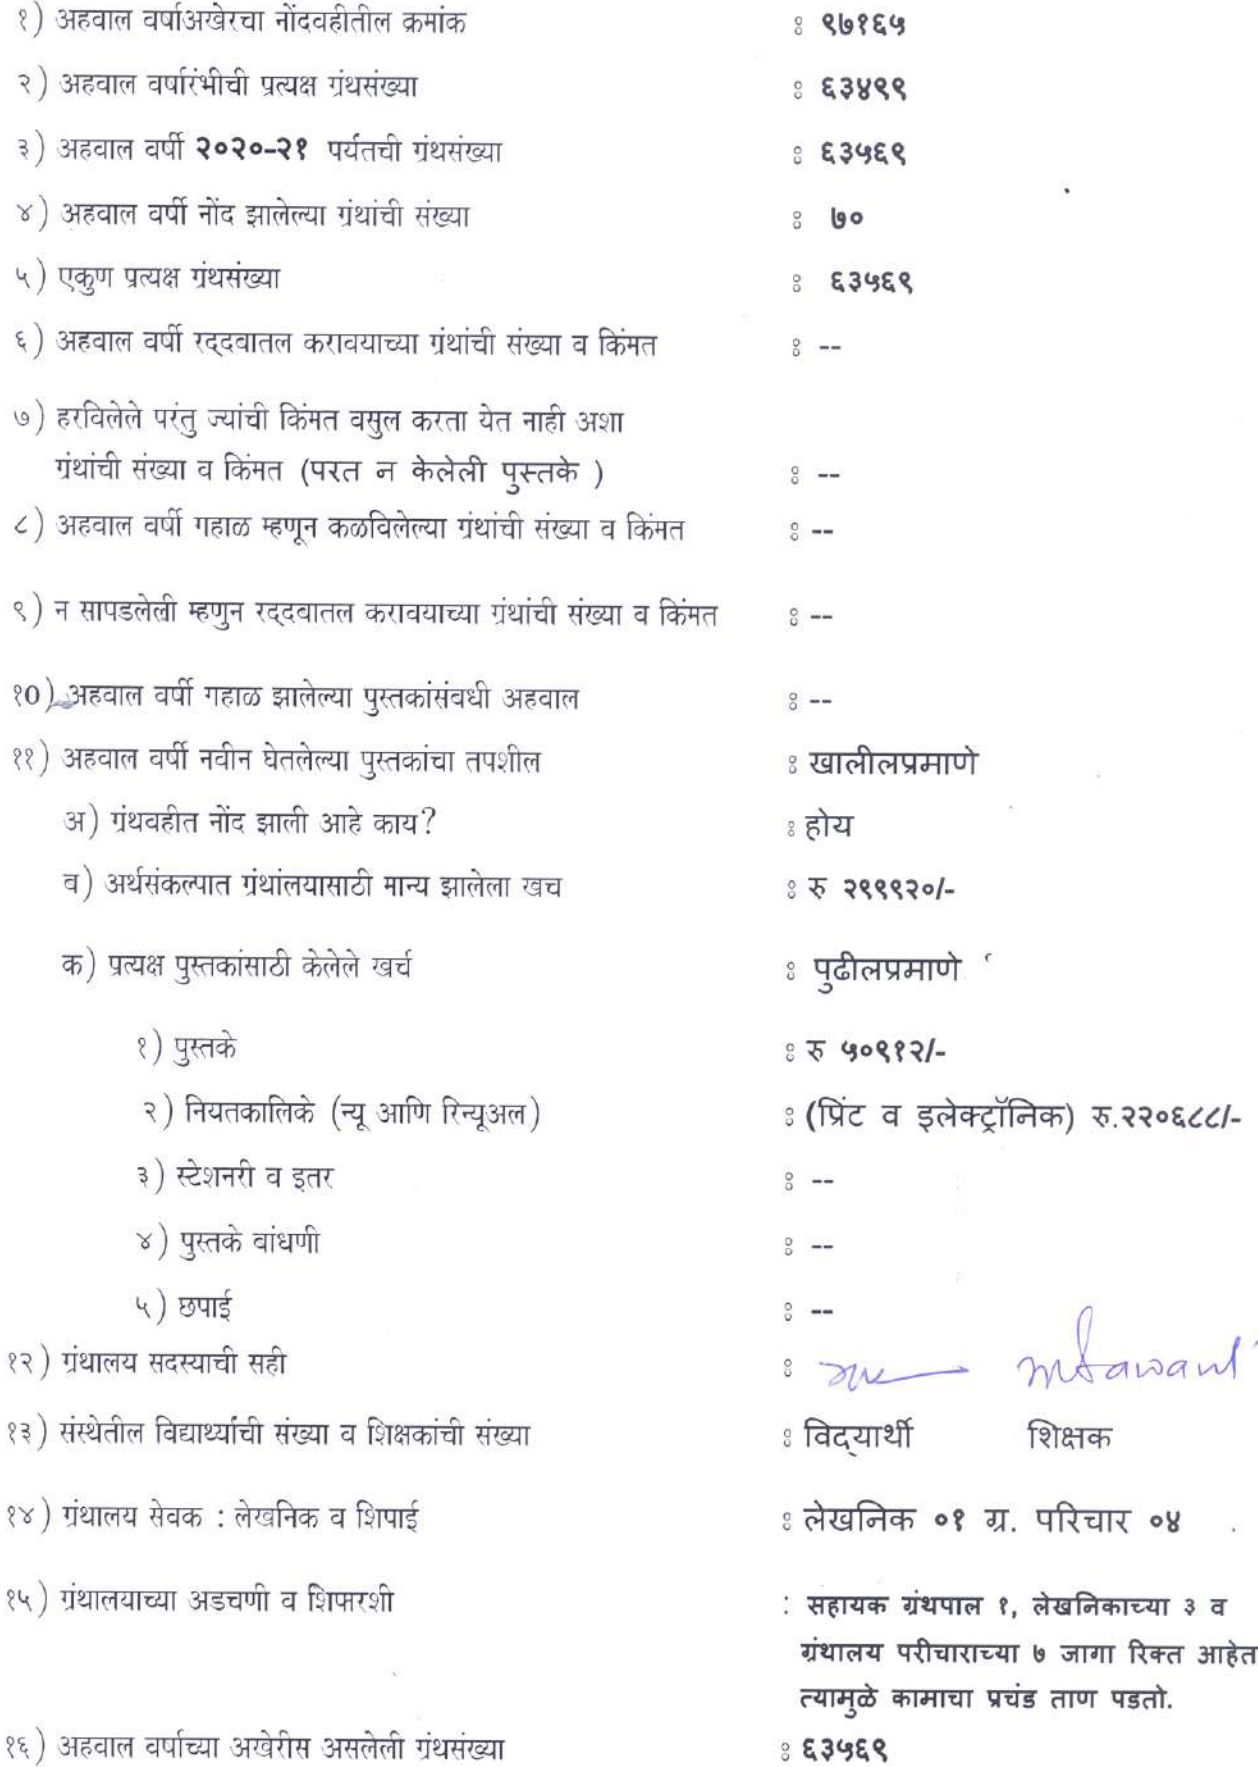 १) अहवाल वर्षाअखेरचा नोंदवहीतील क्रमांक : ९७१६५
२) अहवाल वर्षारंभीची प्रत्यक्ष ग्रंथसंख्या : ६३४९९
३) अहवाल वर्षी २०२०-२१ पर्यंतची ग्रंथसंख्या : ६३५६९
४) अहवाल वर्षी नोंद झालेल्या ग्रंथांची संख्या : ७०
५) एकुण प्रत्यक्ष ग्रंथसंख्या : ६३५६९
६) अहवाल वर्षी रद्दबातल करावयाच्या ग्रंथांची संख्या व किंमत : --
७) हरविलेले परंतु ज्यांची किंमत वसुल करता येत नाही अशा
ग्रंथांची संख्या व किंमत (परत न केलेली पुस्तके ) : --
८) अहवाल वर्षी गहाळ म्हणून कळविलेल्या ग्रंथांची संख्या व किंमत : --
९) न सापडलेली म्हणुन रद्दबातल करावयाच्या ग्रंथांची संख्या व किंमत : --
१०) अहवाल वर्षी गहाळ झालेल्या पुस्तकांसंबधी अहवाल : --
११) अहवाल वर्षी नवीन घेतलेल्या पुस्तकांचा तपशील : खालीलप्रमाणे
अ) ग्रंथवहीत नोंद झाली आहे काय? : होय
ब) अर्थसंकल्पात ग्रंथांलयासाठी मान्य झालेला खच : रु २९९९२०/-
क) प्रत्यक्ष पुस्तकांसाठी केलेले खर्च : पुढीलप्रमाणे
१) पुस्तके : रु ५०९१२/-
२) नियतकालिके (न्यू आणि रिन्यूअल) : (प्रिंट व इलेक्ट्रॉनिक) रु.२२०६८८/-
३) स्टेशनरी व इतर : --
४) पुस्तके बांधणी : --
५) छपाई : --
१२) ग्रंथालय सदस्याची सही : msawant
१३) संस्थेतील विद्यार्थ्यांची संख्या व शिक्षकांची संख्या : विद्यार्थी शिक्षक
१४) ग्रंथालय सेवक : लेखनिक व शिपाई : लेखनिक ०१ ग्र. परिचार ०४
१५) ग्रंथालयाच्या अडचणी व शिफारशी : सहायक ग्रंथपाल १, लेखनिकाच्या ३ व
ग्रंथालय परीचाराच्या ७ जागा रिक्त आहेत
त्यामुळे कामाचा प्रचंड ताण पडतो.
१६) अहवाल वर्षाच्या अखेरीस असलेली ग्रंथसंख्या : ६३५६९